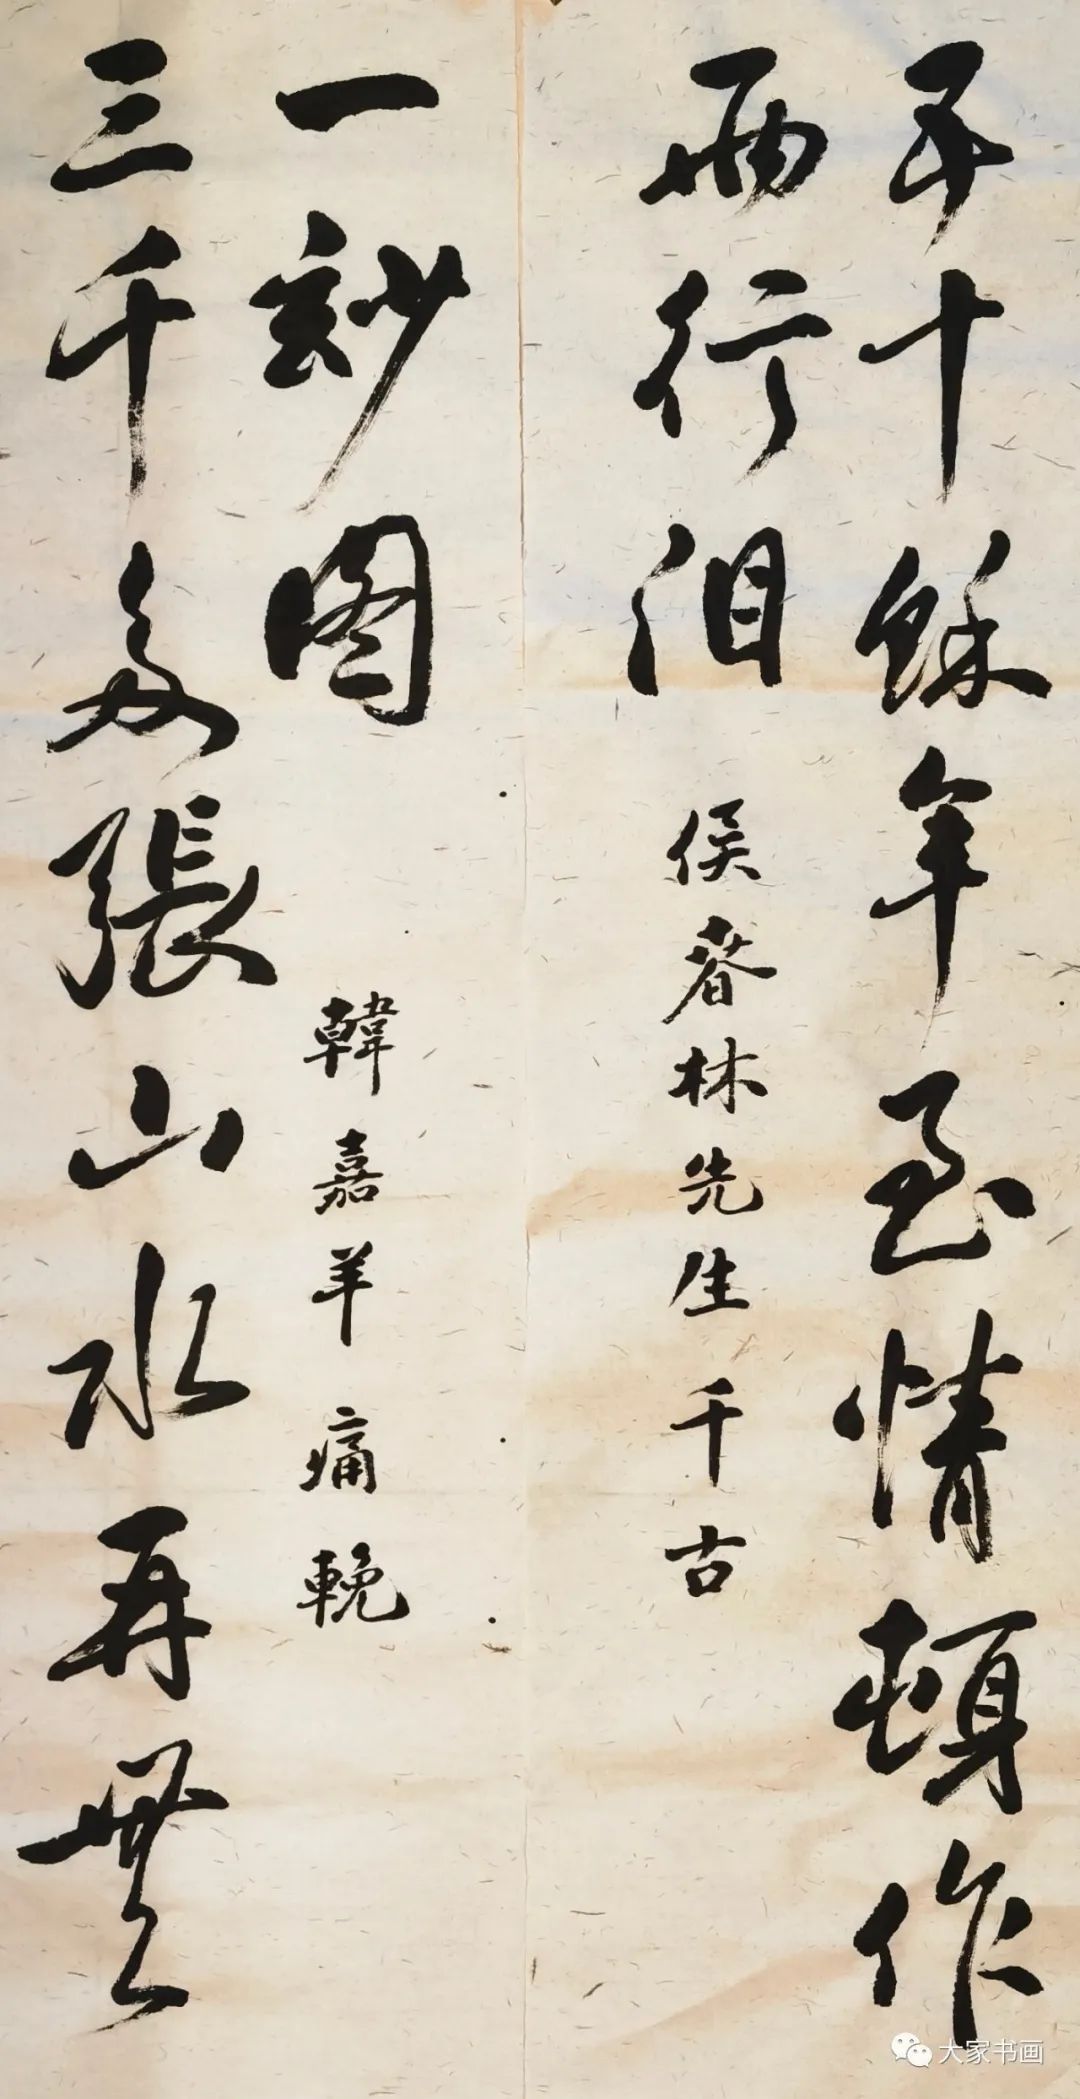 五十餘年至情頓作
兩行泪
侯春林先生千古
三千多張山水再無
一玅图
韓嘉羊痛輓
大家书画